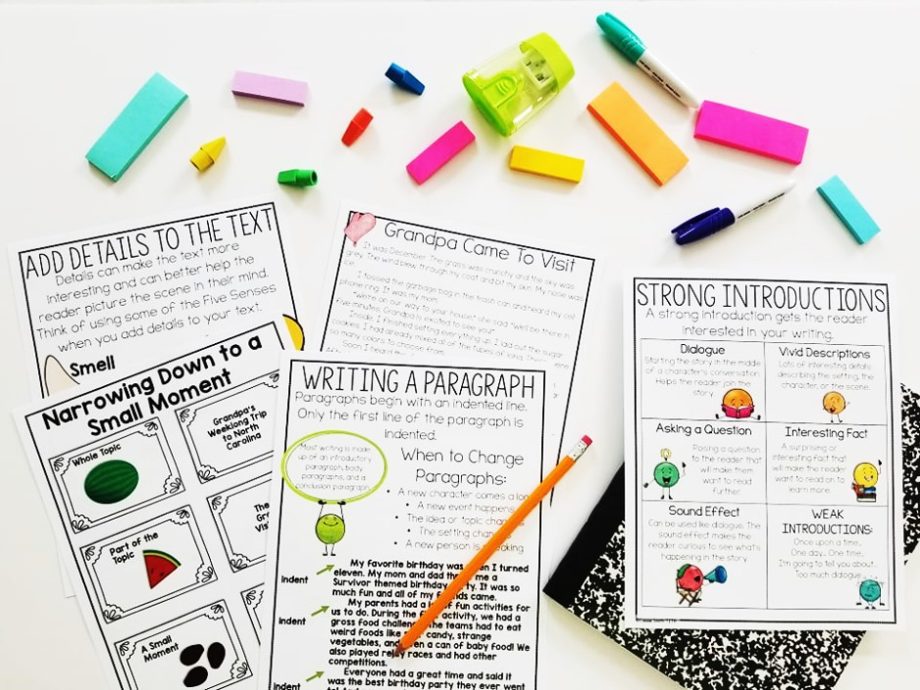 ADD DETAILS TO THE TEXT
Details can make the text more
interesting and can better help the
reader picture the scene in their mind.
Think of using some of the Five Senses
when you add details to your text.
Smell
Grandpa Came To Visit
It was December. The grass was crunchy and the sky was
grey. The wind blew through my coat and bit my skin. My nose was
I tossed the garbage bag in the trash can and heard my cell
phone ring. It was my mom.
Narrowing Down to a
Small Moment
Whole Topic
Grandpa's
Weeklong Trip
to North
Carolina
Part of the
Topic
The
A Small
Moment
WRITING A PARAGRAPH
Paragraphs begin with an indented line.
Only the first line of the paragraph is
indented.
Most writing is made
up of an introductory
paragraph, body
paragraphs, and a
conclusion paragraph.
When to Change
Paragraphs:
• A new character comes
• A new event happens
• The idea or topic
• The setting
• A new person is speaking
Indent
My favorite birthday was when I turned
eleven. My mom and dad me a
Survivor themed birthday party. It was so
much fun and all of my friends came.
Indent
My parents had a of fun activities for
us to do. During the activity, we had a
gross food challenge. The teams had to eat
weird foods like candy, strange
vegetables, and even a can of baby food! We
also played relay races and had other
competitions.
Indent
Everyone had a great time and said it
was the best birthday party they ever went
STRONG INTRODUCTIONS
A strong introduction gets the reader
interested in your writing.
Dialogue
Starting the story in the middle
of a character's conversation.
Helps the reader join the
story.
Vivid Descriptions
Lots of interesting details
describing the setting, the
character, or the scene.
Asking a Question
Posing a question
to the reader that
will make them
want to read
further.
Interesting Fact
A surprising or
interesting fact that
will make the reader
want to read on to
learn more.
Sound Effect
Can be used like dialogue. The
sound effect makes the
reader curious to see what's
happening in the story.
WEAK
INTRODUCTIONS:
Once upon a time...
One day... One time...
I'm going to tell you about...
Too much dialogue